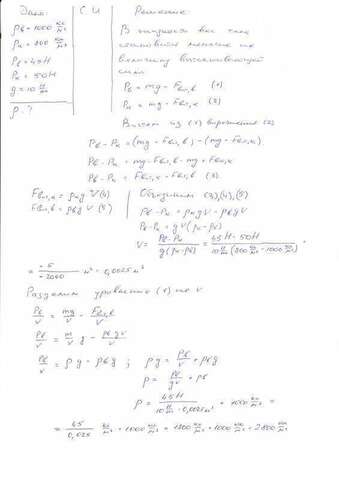 Дано: СИ Решение:
ρв = 1000 кг/м³
ρк = 800 кг/м³
Pв = 45Н
Pк = 50Н
g = 10 м/с²
ρ - ?
В жидкости вес тела
становится меньше на
величину выталкивающей
силы
Pв = mg - Fвт,в (1)
Pк = mg - Fвт,к (2)
Вычтем из (1) выражение (2)
Pв - Pк = (mg - Fвт,в) - (mg - Fвт,к)
Pв - Pк = mg - Fвт,в - mg + Fвт,к
Pв - Pк = Fвт,к - Fвт,в (3)
Fвт,к = ρкgV (4)
Fвт,в = ρвgV (5)
Объединим (3),(4),(5)
Pв - Pк = ρкgV - ρвgV
Pв - Pк = gV(ρк - ρв)
V = (Pв - Pк)/(g(ρк - ρв)) = (45Н - 50Н)/(10 (800 кг/м³ - 1000 кг/м³)) =
= -5/-2000 м³ = 0,0025 м³
Разделим уравнение (1) на V
Pв/V = mg/V - Fвт,в/V
Pв/V = m/V g - ρвgV/V
Pв/V = ρg - ρвg ; ρg = Pв/V + ρвg
ρ = Pв/gV + ρв
ρ = 45Н/(10 · 0,0025 м³) + 1000 кг/м³ =
= 45/0,025 кг/м³ + 1000 кг/м³ = 1800 кг/м³ + 1000 кг/м³ = 2800 кг/м³